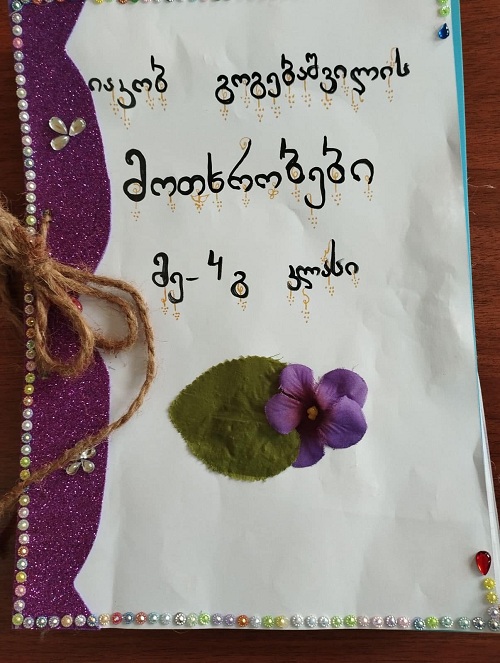 იაკობ გოგებაშვილის
მოთხრობები
მე-4გ კლასი